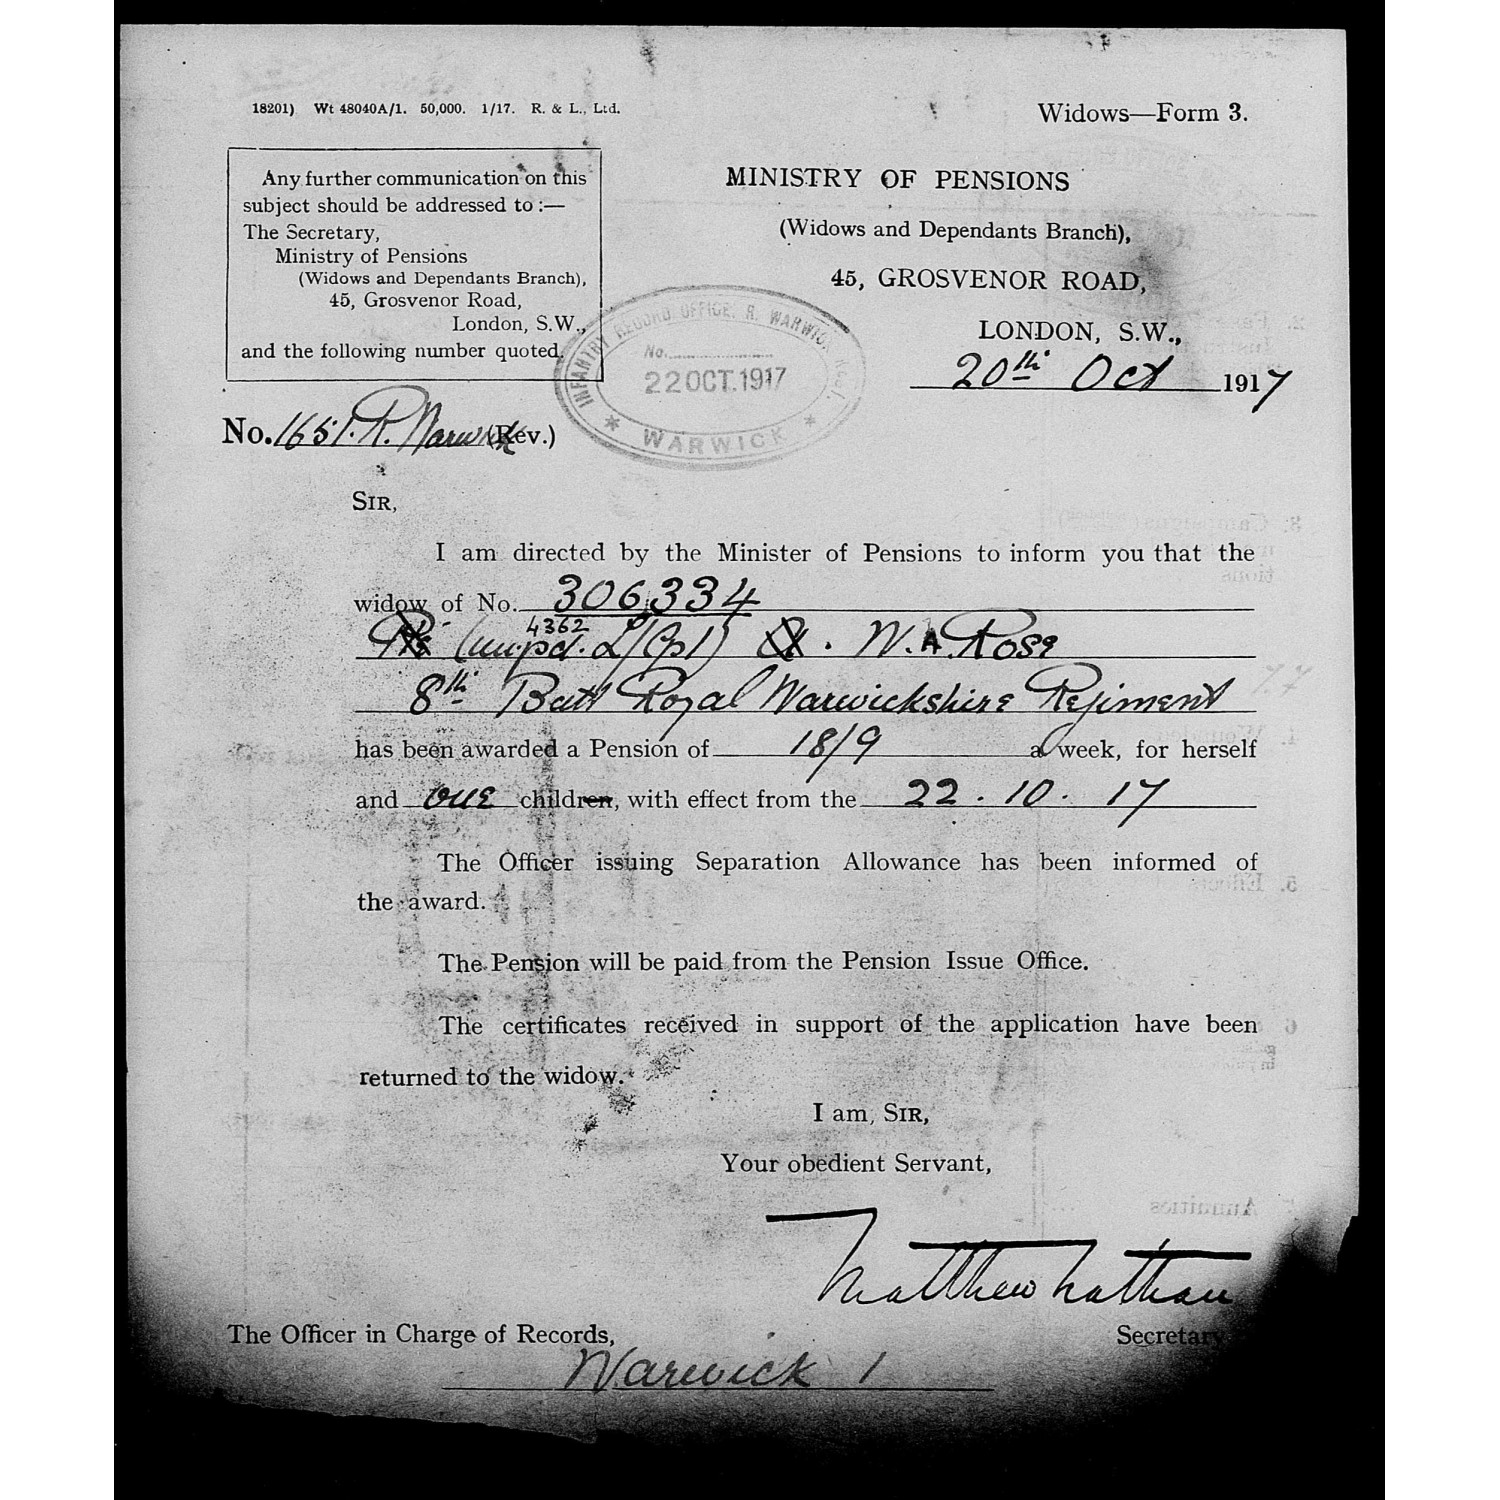 18201) Wt 48040A/1. 50,000. 1/17. R. & L., Ltd.
Widows—Form 3.
Any further communication on this
subject should be addressed to :—
The Secretary,
Ministry of Pensions
(Widows and Dependants Branch),
45, Grosvenor Road,
London, S.W.,
and the following number quoted.
MINISTRY OF PENSIONS
(Widows and Dependants Branch),
45, GROSVENOR ROAD,
LONDON, S.W.,
20th Oct 1917
INFANTRY RECORD OFFICE. R. WARWICK
No.
22 OCT. 1917
* WARWICK *
No. 1651. R. Warwick (Rev.)
SIR,
I am directed by the Minister of Pensions to inform you that the
widow of No. 306334
4362
(unpd. L/Cpl) W. A. Rose
8th Batt Royal Warwickshire Regiment
has been awarded a Pension of 18/9 a week, for herself
and one children, with effect from the 22. 10. 17
The Officer issuing Separation Allowance has been informed of
the award.
The Pension will be paid from the Pension Issue Office.
The certificates received in support of the application have been
returned to the widow.
I am, SIR,
Your obedient Servant,
Matthew Nathan
The Officer in Charge of Records,
Secretary
Warwick 1